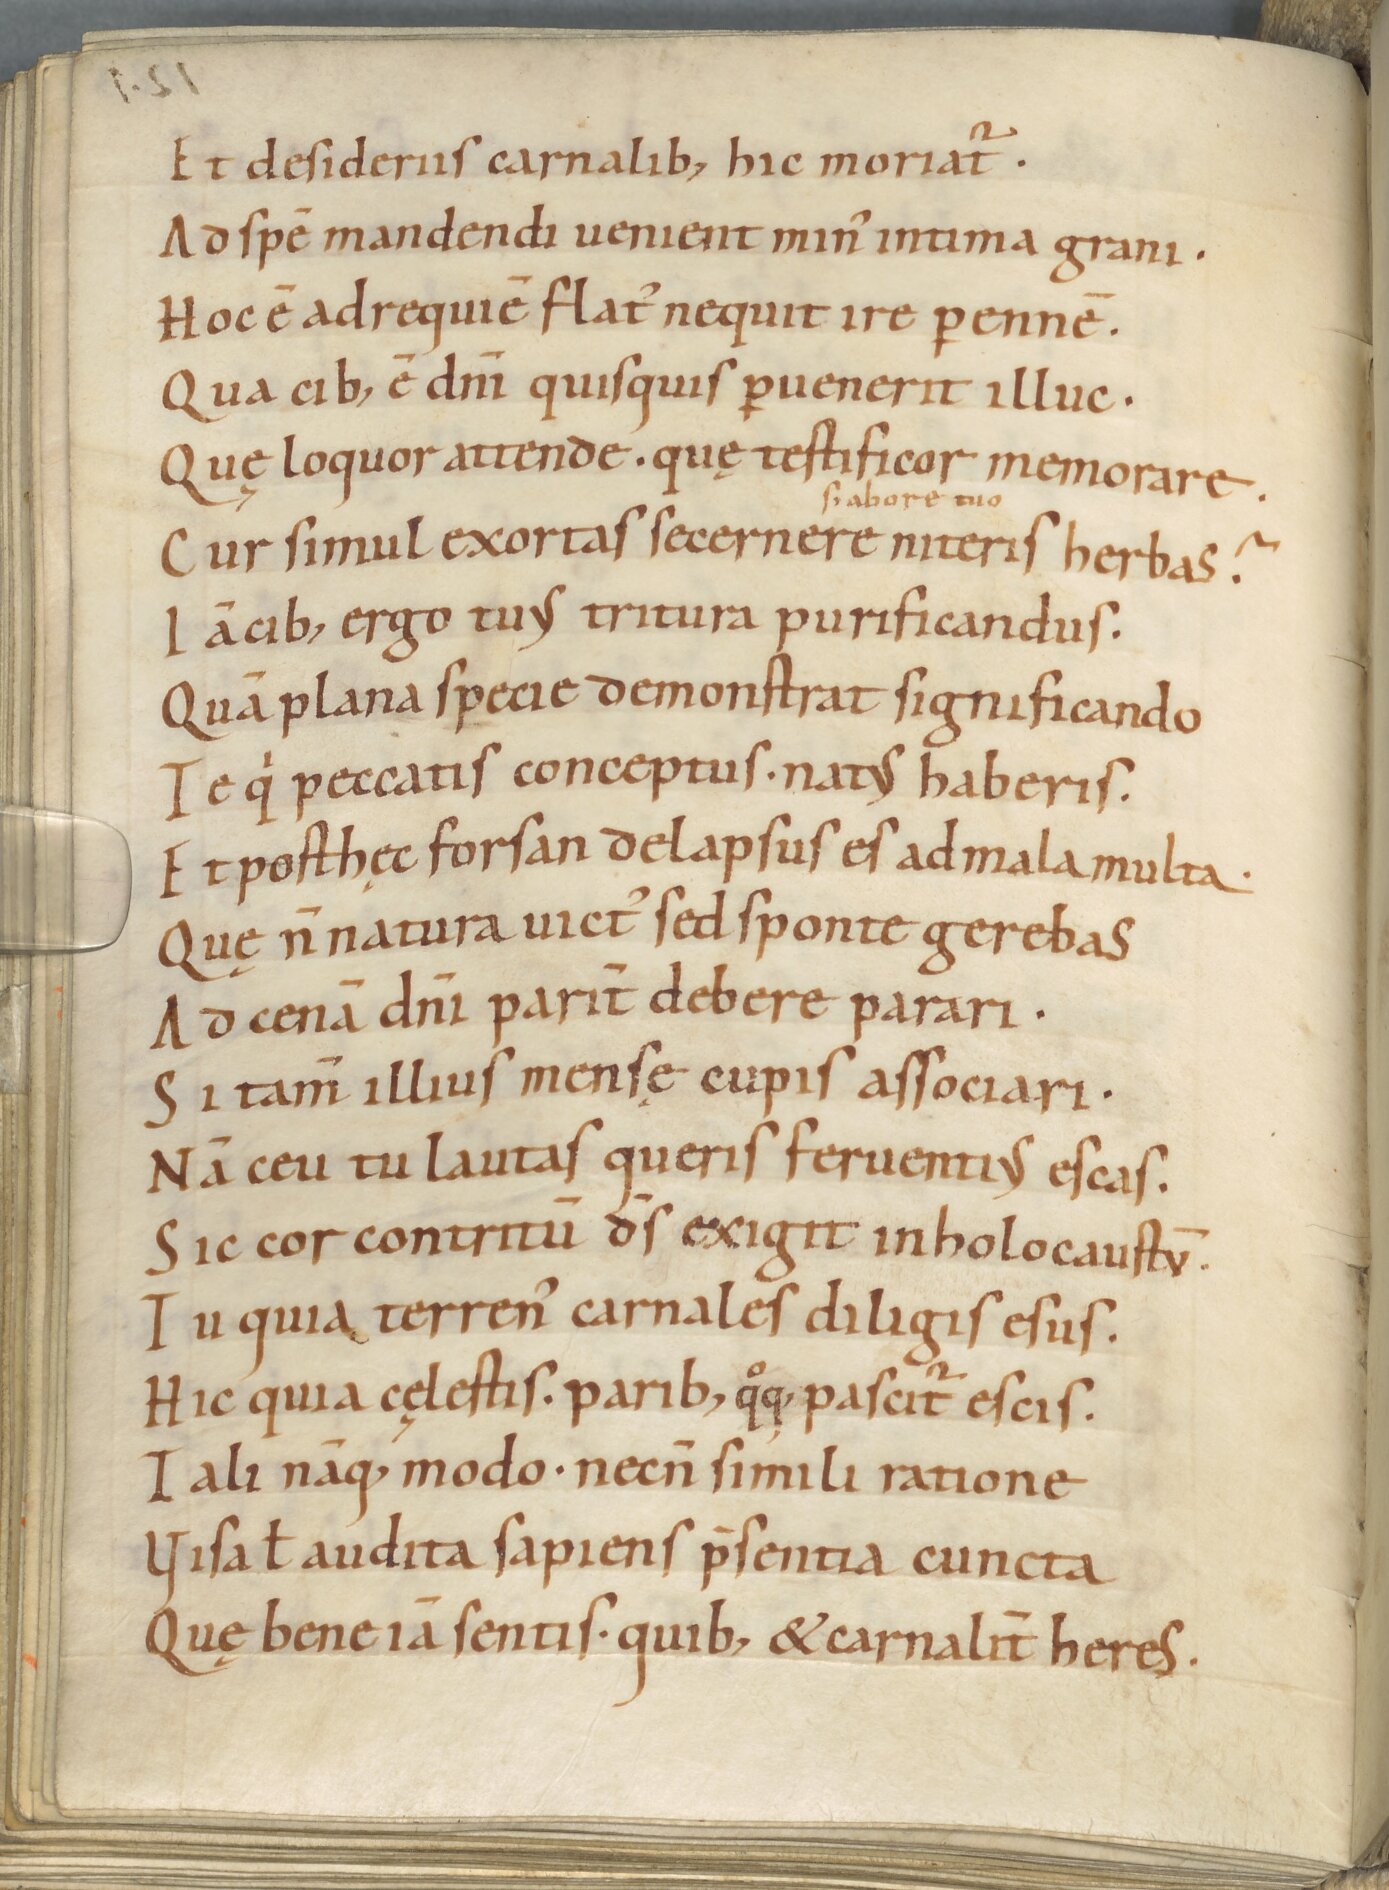 Et desideriis carnalib, hic moriat᷑.
Ad spē mandendi uenient min᾽ intima grani.
Hoc ē ad requiē flat᾽ nequit ire ꝑennē.
Qua cib, ē dn̄i quisquis ꝑuenerit illuc.
Quę loquor attende. quę testificor memorare.
s; abore tuo
Cur simul exortas secernere niteris herbas?
Iā cib, ergo tuꝰ tritura purificandus.
Quā plana specie demonstrat significando
Te qi̇ peccatis conceptus. natꝰ haberis.
Et posthęc forsan delapsus es ad mala multa.
Quę n̄ natura uict᾽ sed sponte gerebas
Ad cenā dn̄i parit̄ debere parari.
Si tam̄ illius mensę cupis associari.
Nā ceu tu lautas queris feruentiꝰ escas.
Sic cor contritū d̄s exigit in holocaustv̄.
Tu quia terren᾽ carnales diligis esus.
Hic quia cęlestis. parib, qͦq, pascit᷑ escis.
Tali nāq, modo. necn̄ simili ratione
Visa ł audita sapiens p̄sentia cuncta
Quę bene iā sentis. quib, & carnalit̄ heres.